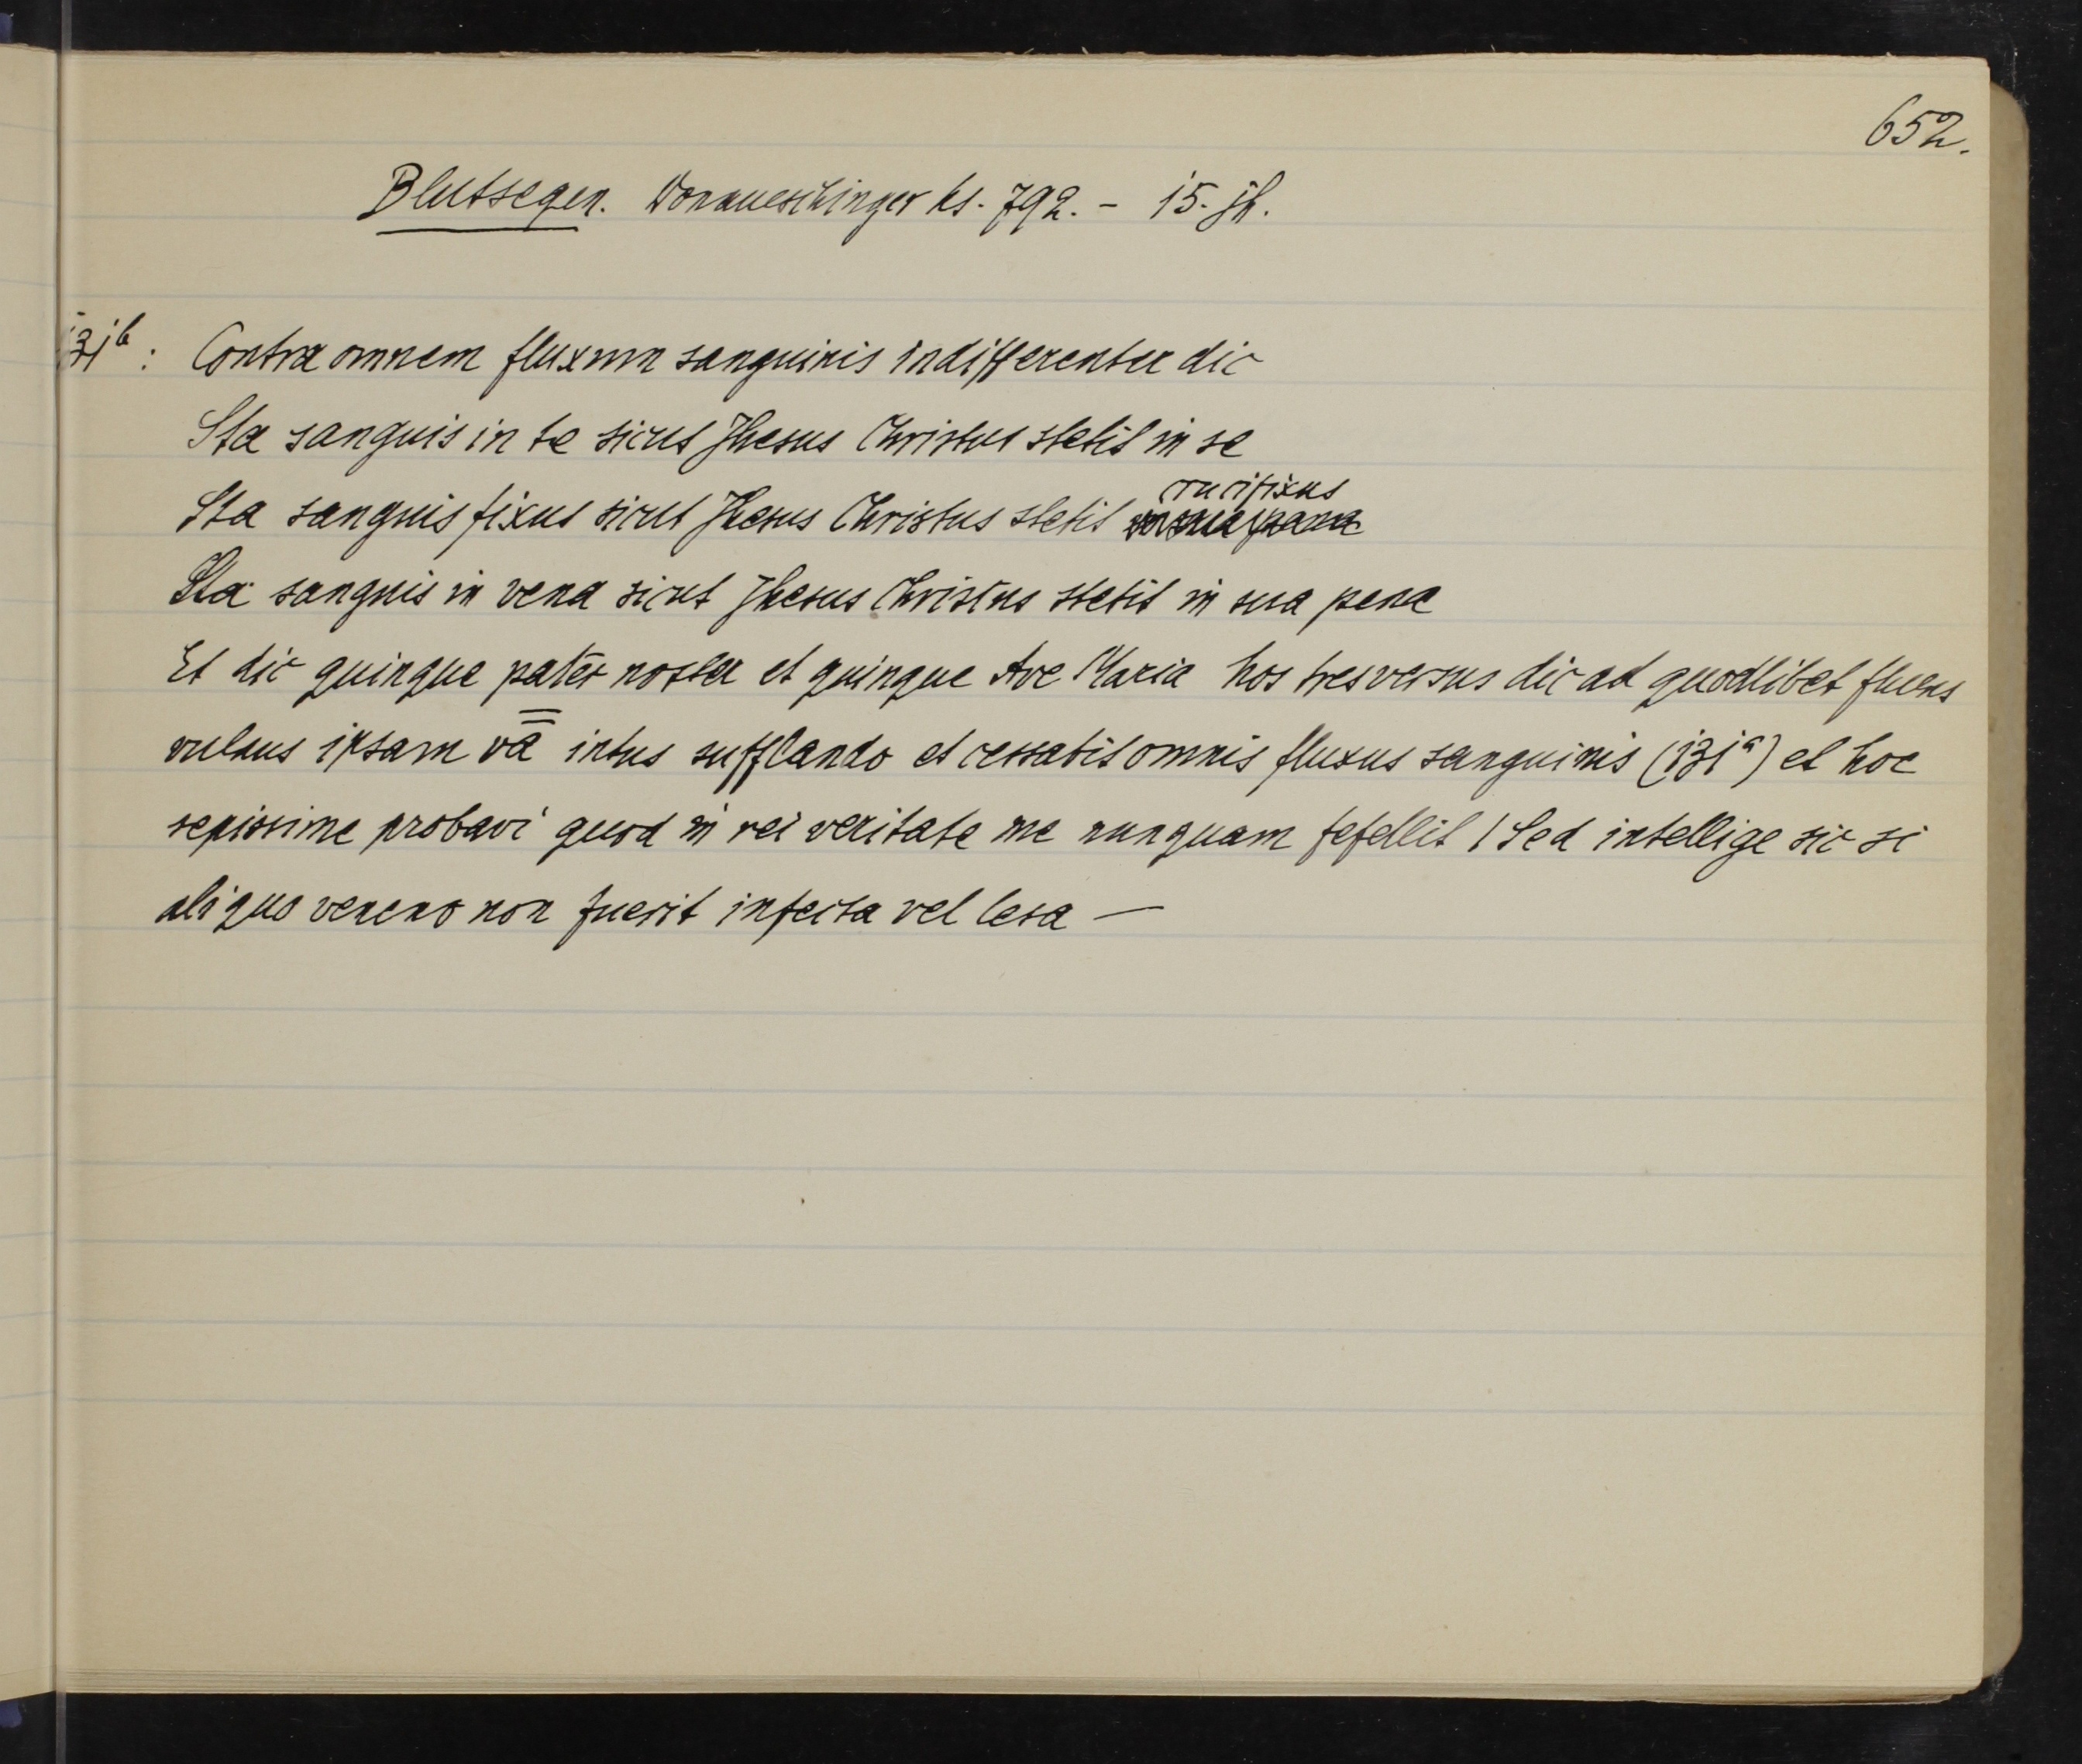 652.
Blutsegen. Donaueschinger hs. 792. - 15. jh.
131b : Contra omnem fluxum sanguinis indifferenter dic
Sta sanguis in te sicut Jhesus Christus stetit in se
crucifixus
Sta sanguis fixus sicut Jhesus Christus stetit in sua pena
Sta sanguis in vena sicut Jhesus Christus stetit in sua pena
Et dic quinque pater noster et quinque Ave Maria hos tres versus dic ad quodlibet fluens
vulnus ipsam vā intus sufflando et cessabit omnis fluxus sanguinis (131a) et hoc
sepissime probavi quod in rei veritate me nunquam fefellit / Sed intellige sic si
aliquo veneno non fuerit infecta vel lesa —